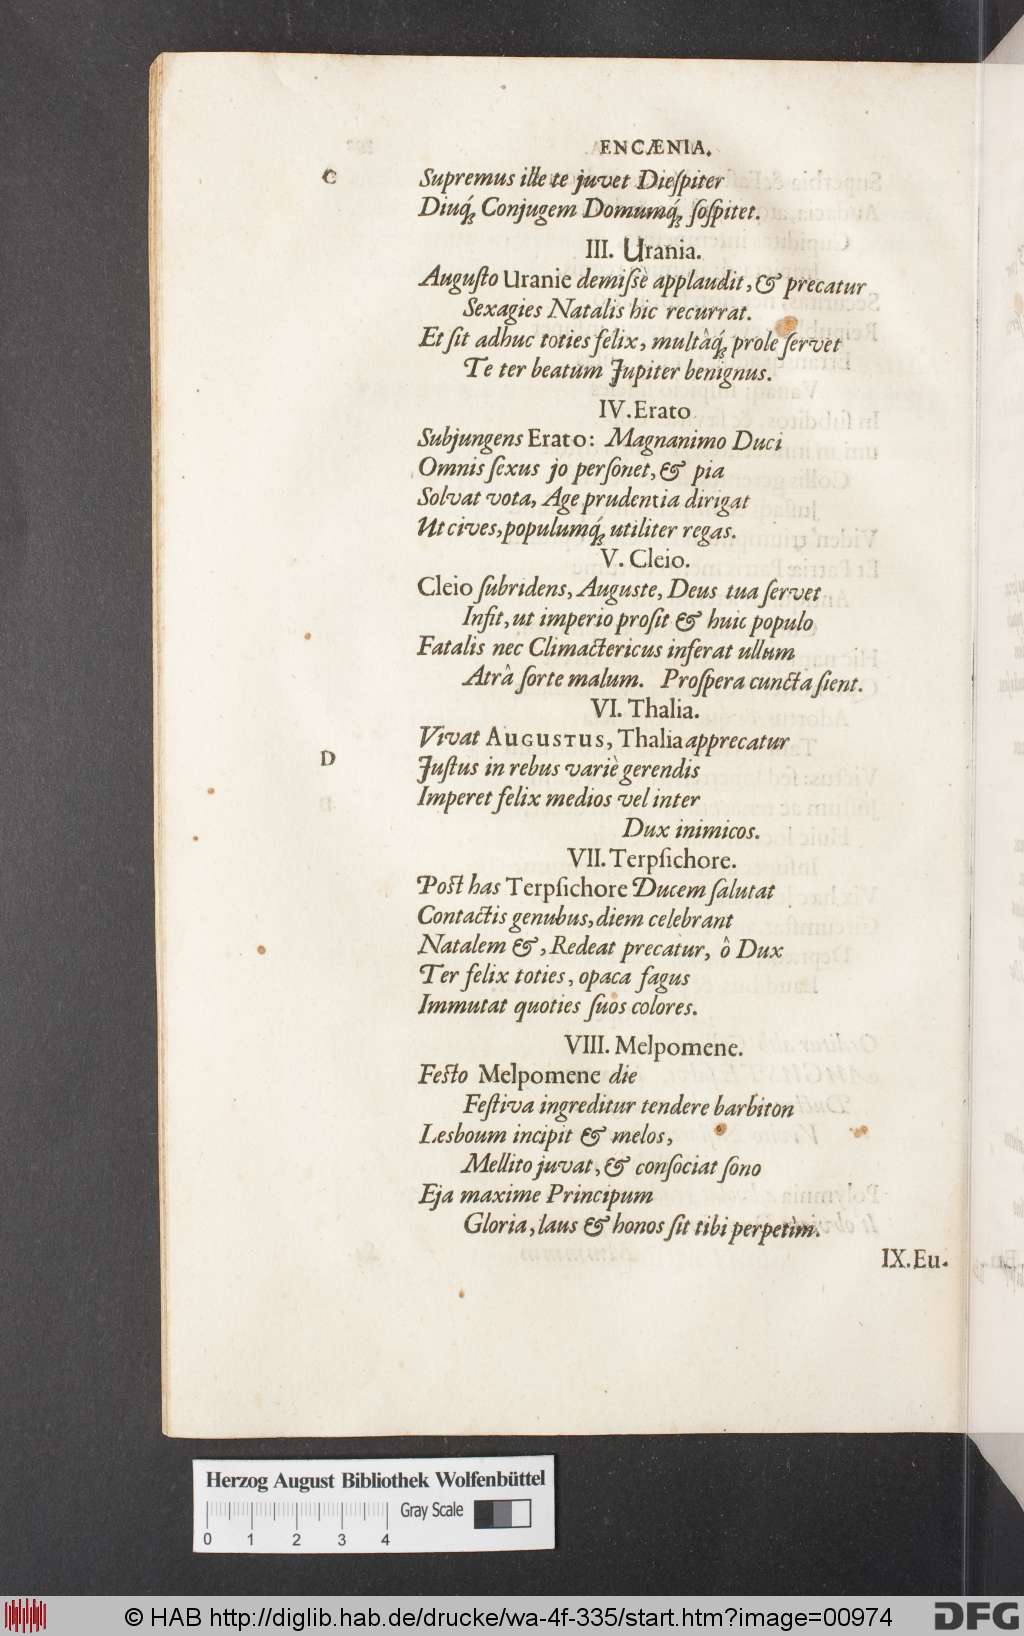 ENCÆNIA.
C
Supremus ille te juvet Dieſpiter
Diuq́; Conjugem Domumq́; ſoſpitet.
III. Urania.
Auguſto Uranie demiſsè applaudit, & precatur
Sexagies Natalis hic recurrat.
Et ſit adhuc toties felix, multâq́; prole ſervet
Te ter beatum Jupiter benignus.
IV. Erato
Subjungens Erato: Magnanimo Duci
Omnis ſexus jo perſonet, & pia
Solvat vota, Age prudentia dirigat
Ut cives, populumq́; utiliter regas.
V. Cleio.
Cleio ſubridens, Auguste, Deus tua ſervet
Inſit, ut imperio proſit & huic populo
Fatalis nec Climactericus inferat ullum
Atrâ ſorte malum. Proſpera cuncta ſient.
VI. Thalia.
Vivat AUGUSTUS, Thalia apprecatur
D
Juſtus in rebus variè gerendis
Imperet felix medios vel inter
Dux inimicos.
VII. Terpſichore.
Post has Terpſichore Ducem ſalutat
Contactis genubus, diem celebrant
Natalem &, Redeat precatur, ô Dux
Ter felix toties, opaca fagus
Immutat quoties ſuos colores.
VIII. Melpomene.
Festo Melpomene die
Feſtiva ingreditur tendere barbiton
Lesboum incipit & melos,
Mellito juvat, & conſociat ſono
Eja maxime Principum
Gloria, laus & honos ſit tibi perpetim.
IX. Eu-
Herzog August Bibliothek Wolfenbüttel
Gray Scale
0 1 2 3 4
© HAB http://diglib.hab.de/drucke/wa-4f-335/start.htm?image=00974
DFG